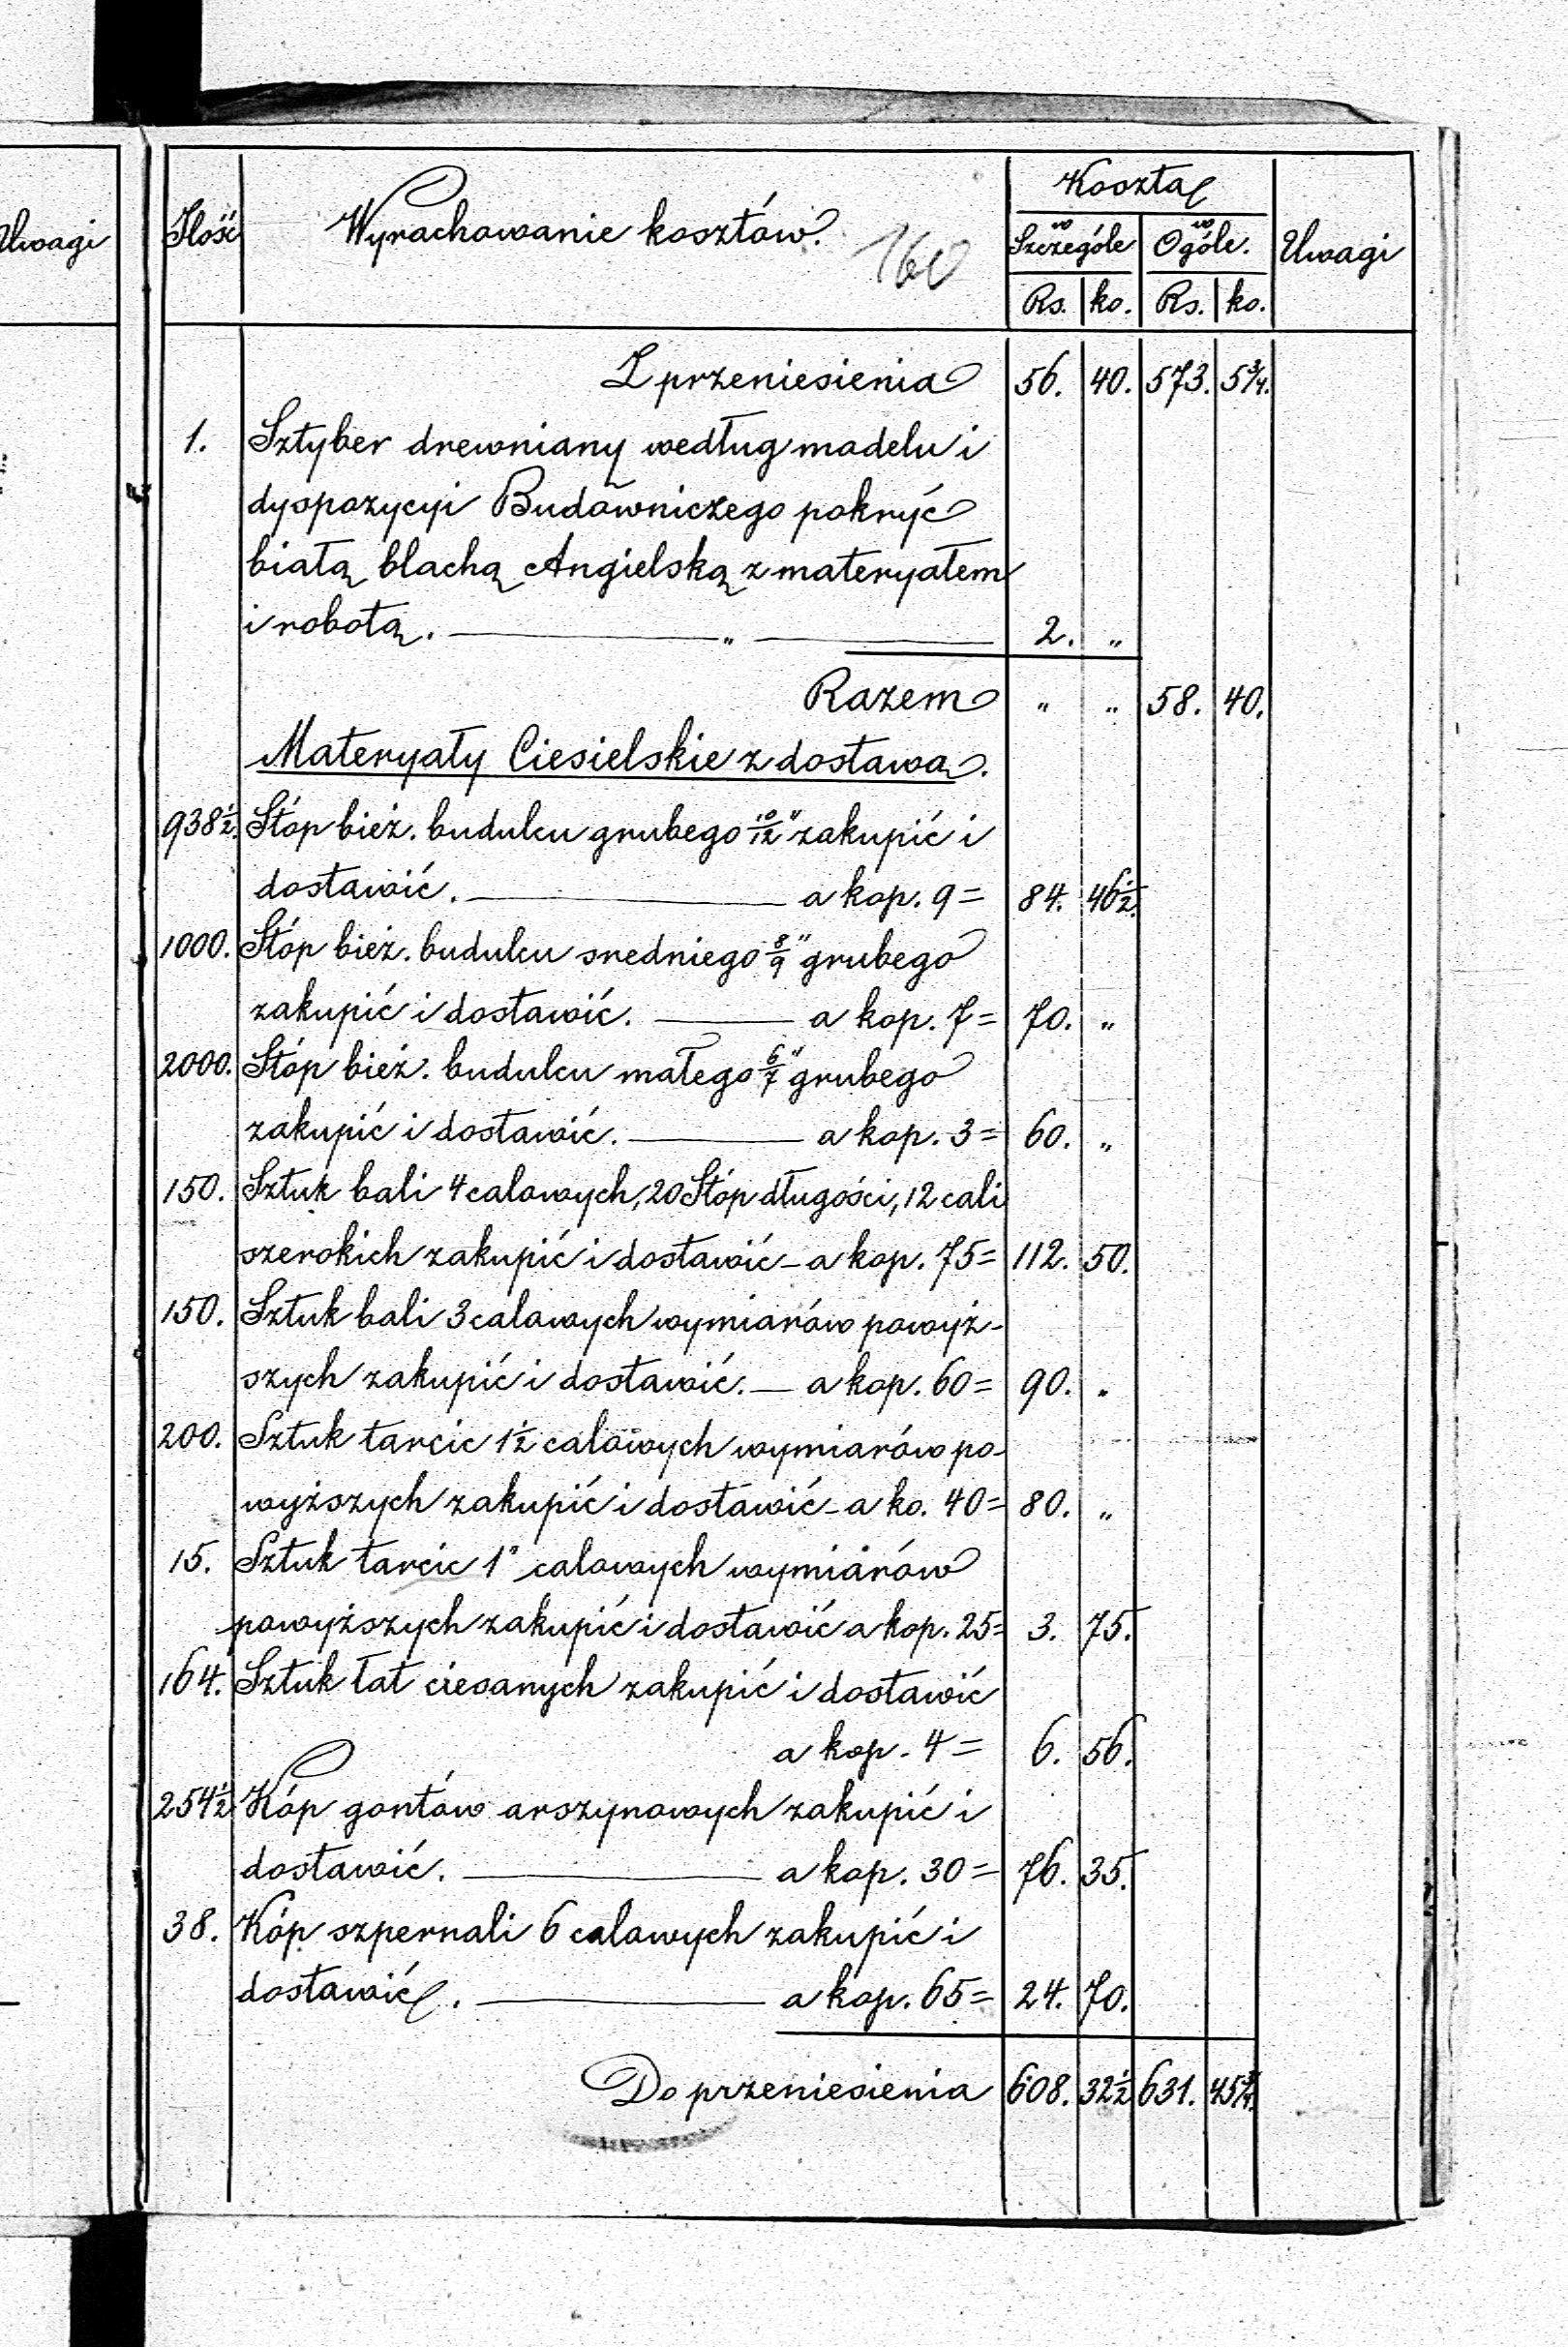 Uwagi
Ilość Wyrachowanie kosztów. Koszta Uwagi
160
w Szczególe w Ogóle.
Rs. ko. Rs. ko.
Z przeniesienia 56. 40. 573. 5¾.
1. Sztyber drewniany według modelu i
dyspozycyi Budowniczego pokryć
białą blachą Angielską z materyałem
i robotą. — „ — 2. „
Razem „ „ 58. 40.
Materyały Ciesielskie z dostawą.
938½. Stóp bież. budulcu grubego 10/12" zakupić i
dostawić. — a kop. 9 = 84. 46½.
1000. Stóp bież. budulcu sredniego 8/9" grubego
zakupić i dostawić. — a kop. 7 = 70. „
2000. Stóp bież. budulcu małego 6/7" grubego
zakupić i dostawić. — a kop. 3 = 60. „
150. Sztuk bali 4 calowych, 20 Stóp długości, 12 cali
szerokich zakupić i dostawić – a kop. 75 = 112. 50.
150. Sztuk bali 3 calowych wymiarów powyż-
szych zakupić i dostawić. — a kop. 60 = 90. „
200. Sztuk tarcic 1½ calowych wymiarów po-
wyższych zakupić i dostawić – a ko. 40 = 80. „
15. Sztuk tarcic 1" calowych wymiarów
powyższych zakupić i dostawić a kop. 25 = 3. 75.
164. Sztuk łat ciesanych zakupić i dostawić
a kop. 4 = 6. 56.
254½ Kóp gontów arszynowych zakupić i
dostawić. — a kop. 30 = 76. 35.
38. Kóp szpernali 6 calowych zakupić i
dostawić. — a kop. 65 = 24. 70.
Do przeniesienia 608. 32½ 631. 45¾.